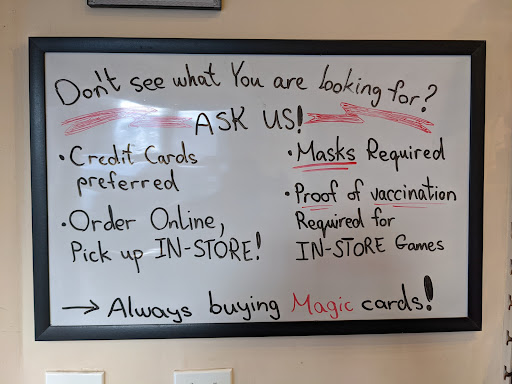 Don't see what You are looking for?
ASK US!
• Credit Cards
preferred
• Order Online,
Pick up IN-STORE!
• Masks Required
• Proof of vaccination
Required for
IN-STORE Games
→ Always buying Magic cards!